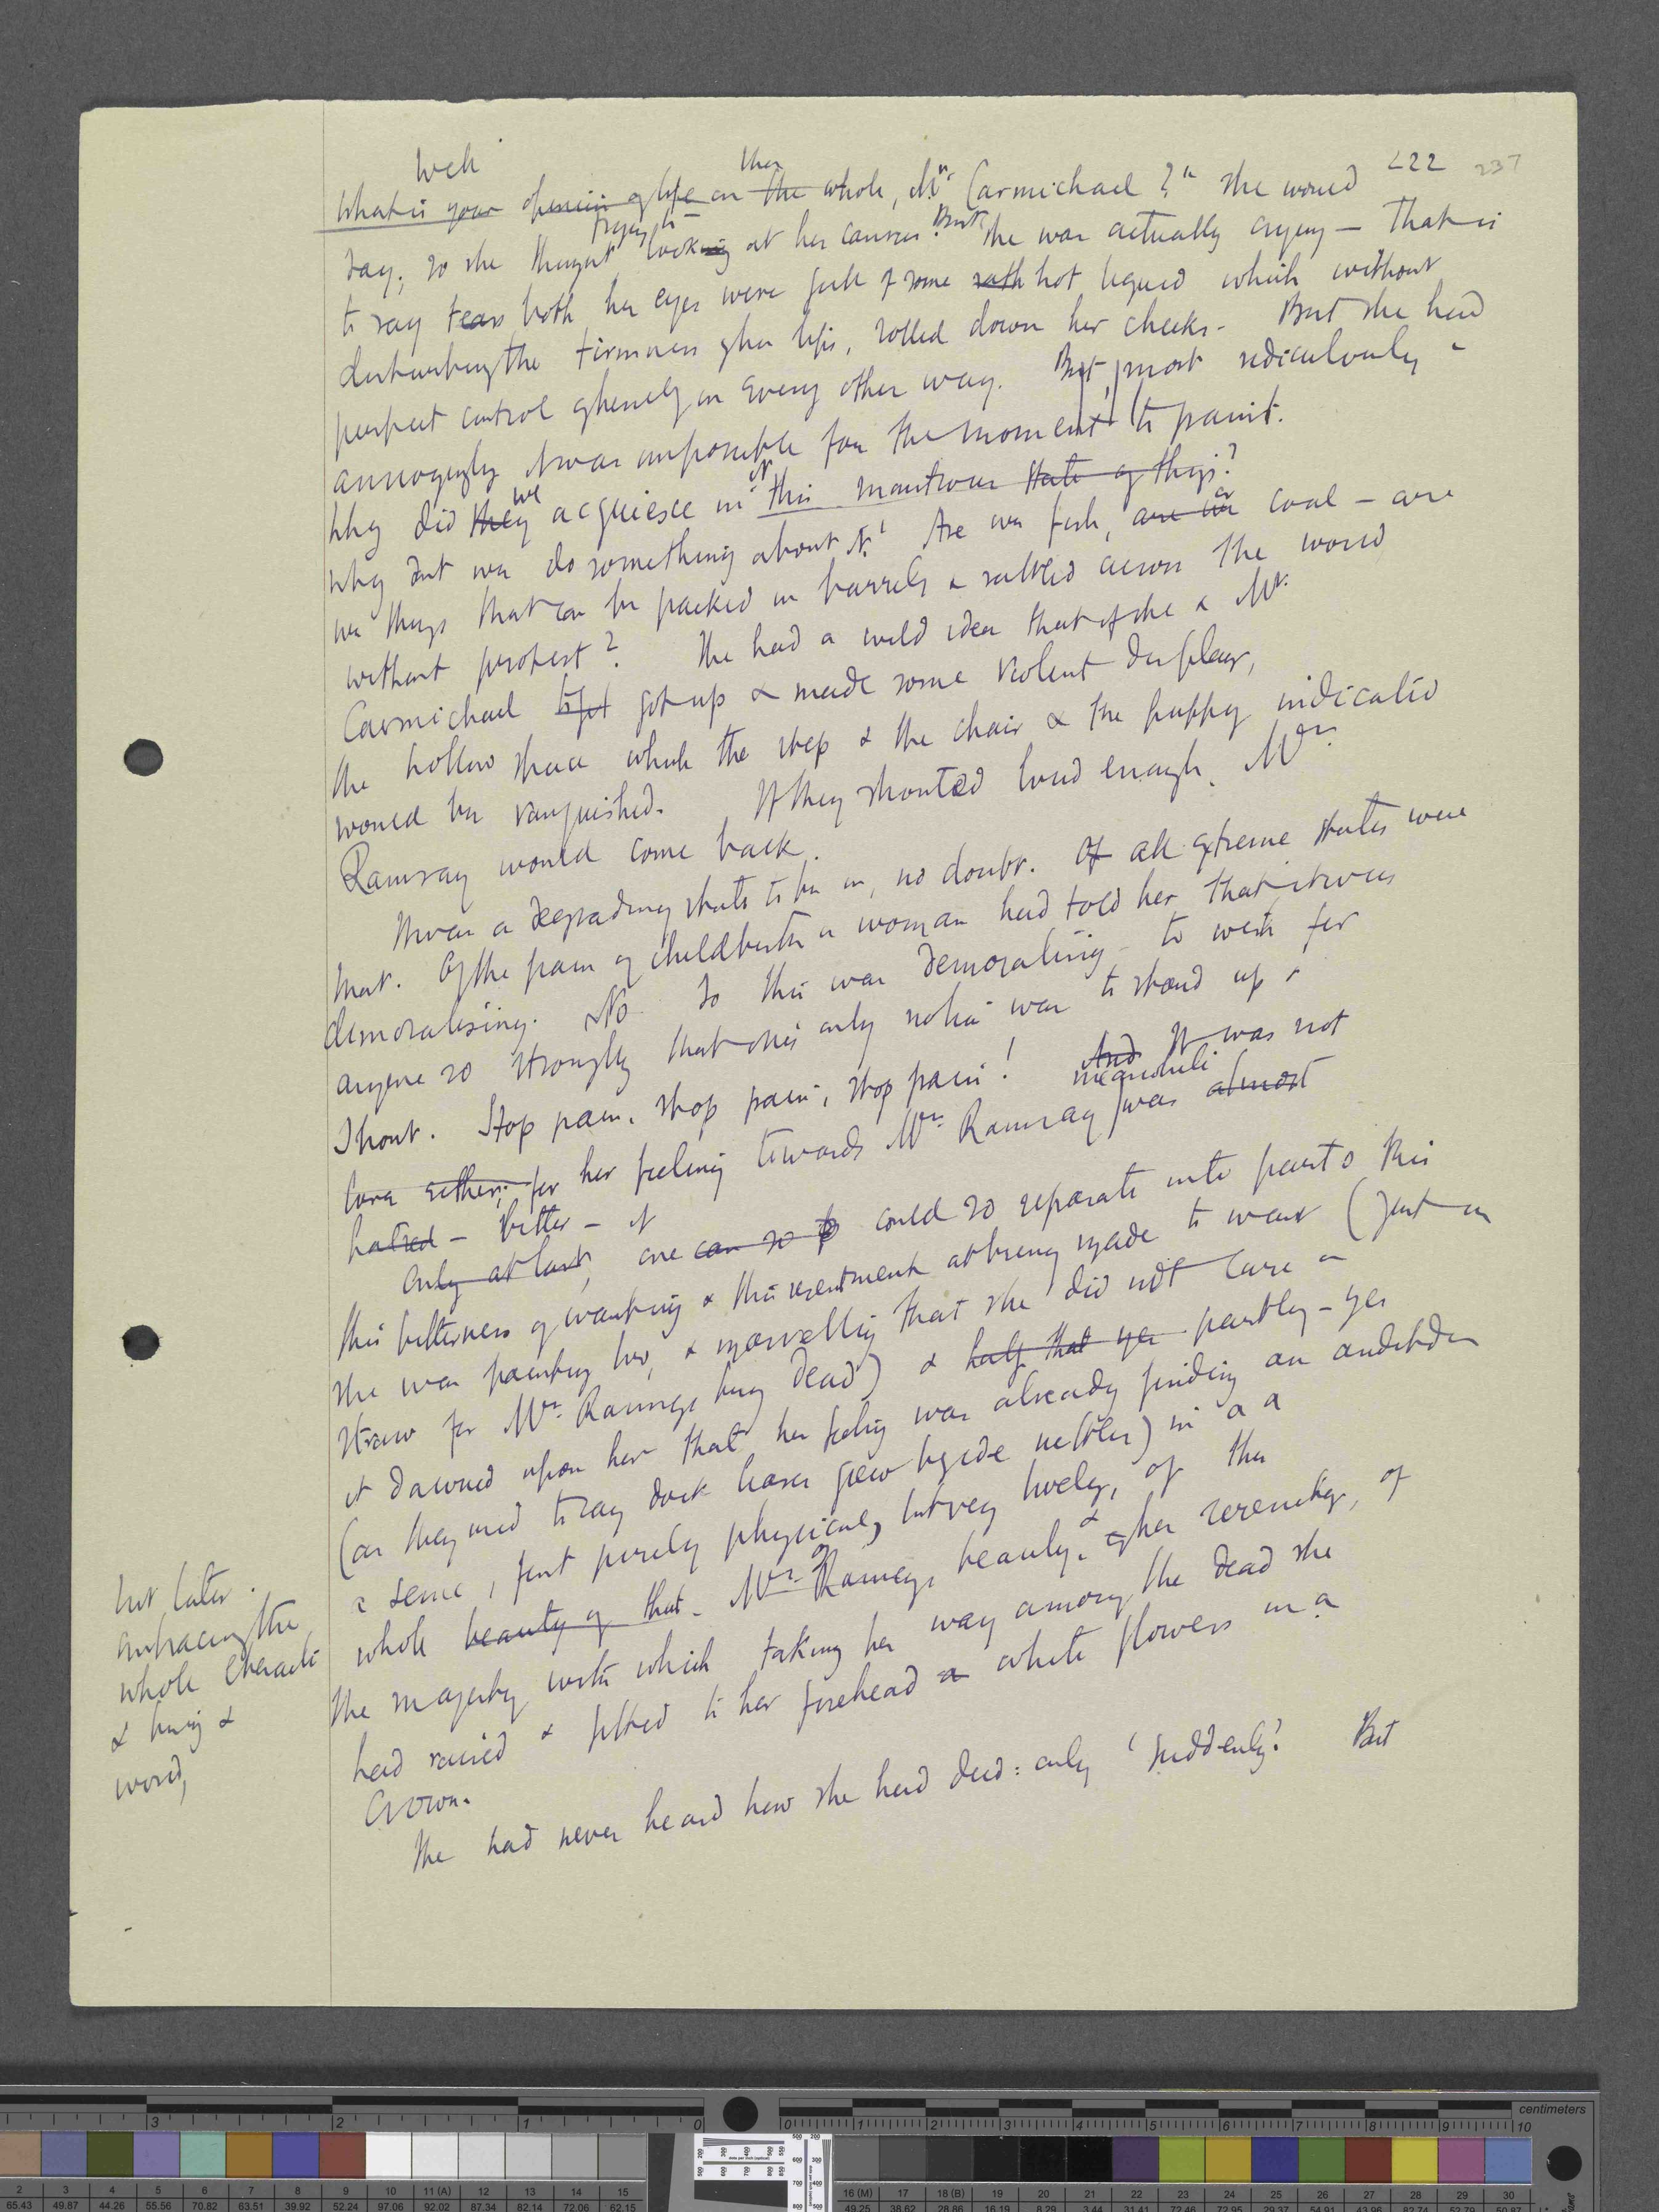 222 237
Well then
What is your opinion of life on the whole, Mr. Carmichael?" she would
say; so she thought trying to looking at her canvas. But she was actually crying — that is
to say tears both her eyes were full of some hot liquid which without
disturbing the firmness of her lips, rolled down her cheeks. But she had
perfect control of herself in every other way. But, most ridiculously &
annoyingly it was impossible for the moment to paint.
Why did they we acquiesce in it this monstrous state of things?
Why dont we do something about it? Are we fish, are we or coal – are
we things that can be packed in barrels & rattled across the world
without protest? She had a wild idea that if she & Mr.
Carmichael got up & made some violent display,
the hollow space which the step & the chair & the puppy indicated
would be vanquished. If they shouted loud enough, Mrs.
Ramsay would come back.
It was a degrading state to be in, no doubt. Of all extreme states were
that. Of the pain of childbirth a woman had told her that it was
demoralising. No So this was demoralising – to wish for
anyone so strongly that one's only notion was to stand up &
shout. Stop pain, stop pain, stop pain! And It was not
love either; for her feeling towards Mrs. Ramsay meanwhile was almost
hatred – bitter – it
Only at last, one can so could so separate into parts this
this bitterness of wanting & this resentment at being made to want (just as
she was painting too, & marvelling that she did not care a
straw for Mrs. Ramsays being dead) & half that yes partly – yes
it dawned upon her that her feeling was already finding an antidote
(as they used to say dock leaves grew beside nettles) in a a
a sense, first purely physical, but very lovely, of the
whole beauty of that. Mrs. Ramsays beauty, & of her serenity, of
the majesty with which taking her way among the dead she
had raised & fitted to her forehead a white flowers in a
Crown.
She had never heard how she had died: only 'suddenly'. But
but later.
embracing the
whole character
& being &
world,
centimeters
3 2 1 0 0 1 2 3 4 5 6 7 8 9 10
2 3 4 5 6 7 8 9 10 11 (A) 12 13 14 15 16 (M) 17 18 (B) 19 20 21 22 23 24 25 26 27 28 29 30
65.43 49.87 44.26 55.56 70.82 63.51 39.92 52.24 97.06 92.02 87.34 82.14 72.06 62.15 49.25 38.62 28.86 16.19 8.29 3.44 31.41 72.46 72.95 29.37 54.91 43.96 82.74 52.79 50.87